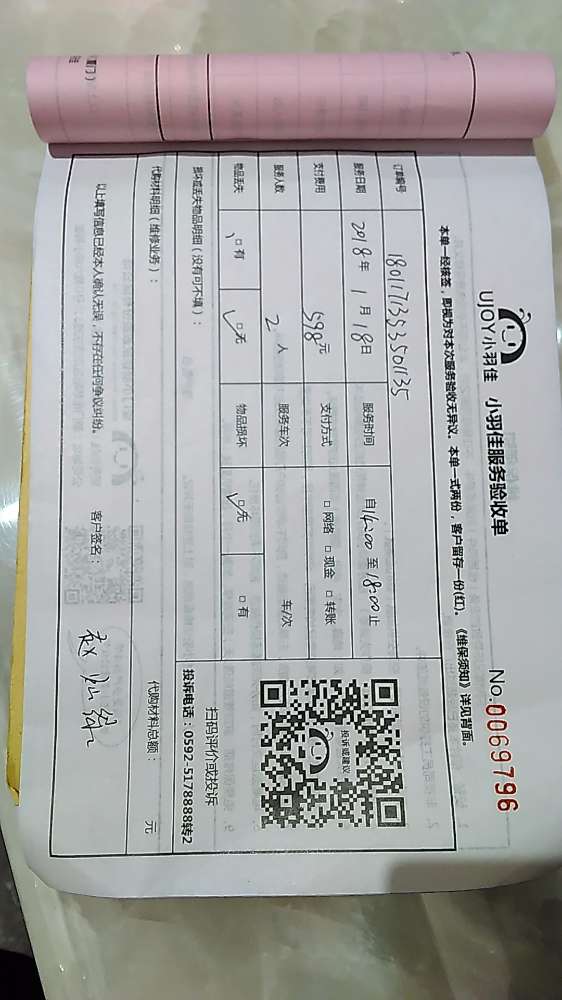 UJOY小羽佳 小羽佳服务验收单
No.0069796
本单一经核签，即视为对本次服务验收无异议。本单一式两份，客户留存一份(红)。《维保须知》详见背面。
订单编号 1801171353501135
服务日期 2018年1月18日 服务时间 自14:00至18:00止
支付费用 598元 支付方式 □网络 □现金 □转账
服务人数 2人 服务车次 车/次
物品丢失 □有 □无 物品损坏 □无 □有
投诉或建议
扫码评价或投诉
投诉电话：0592-5178888转2
损坏或丢失物品明细（没有可不填）：
代购材料明细（维修业务）：
代购材料总额： 元
以上填写信息已经本人确认无误，不存在任何争议纠纷。 客户签名：